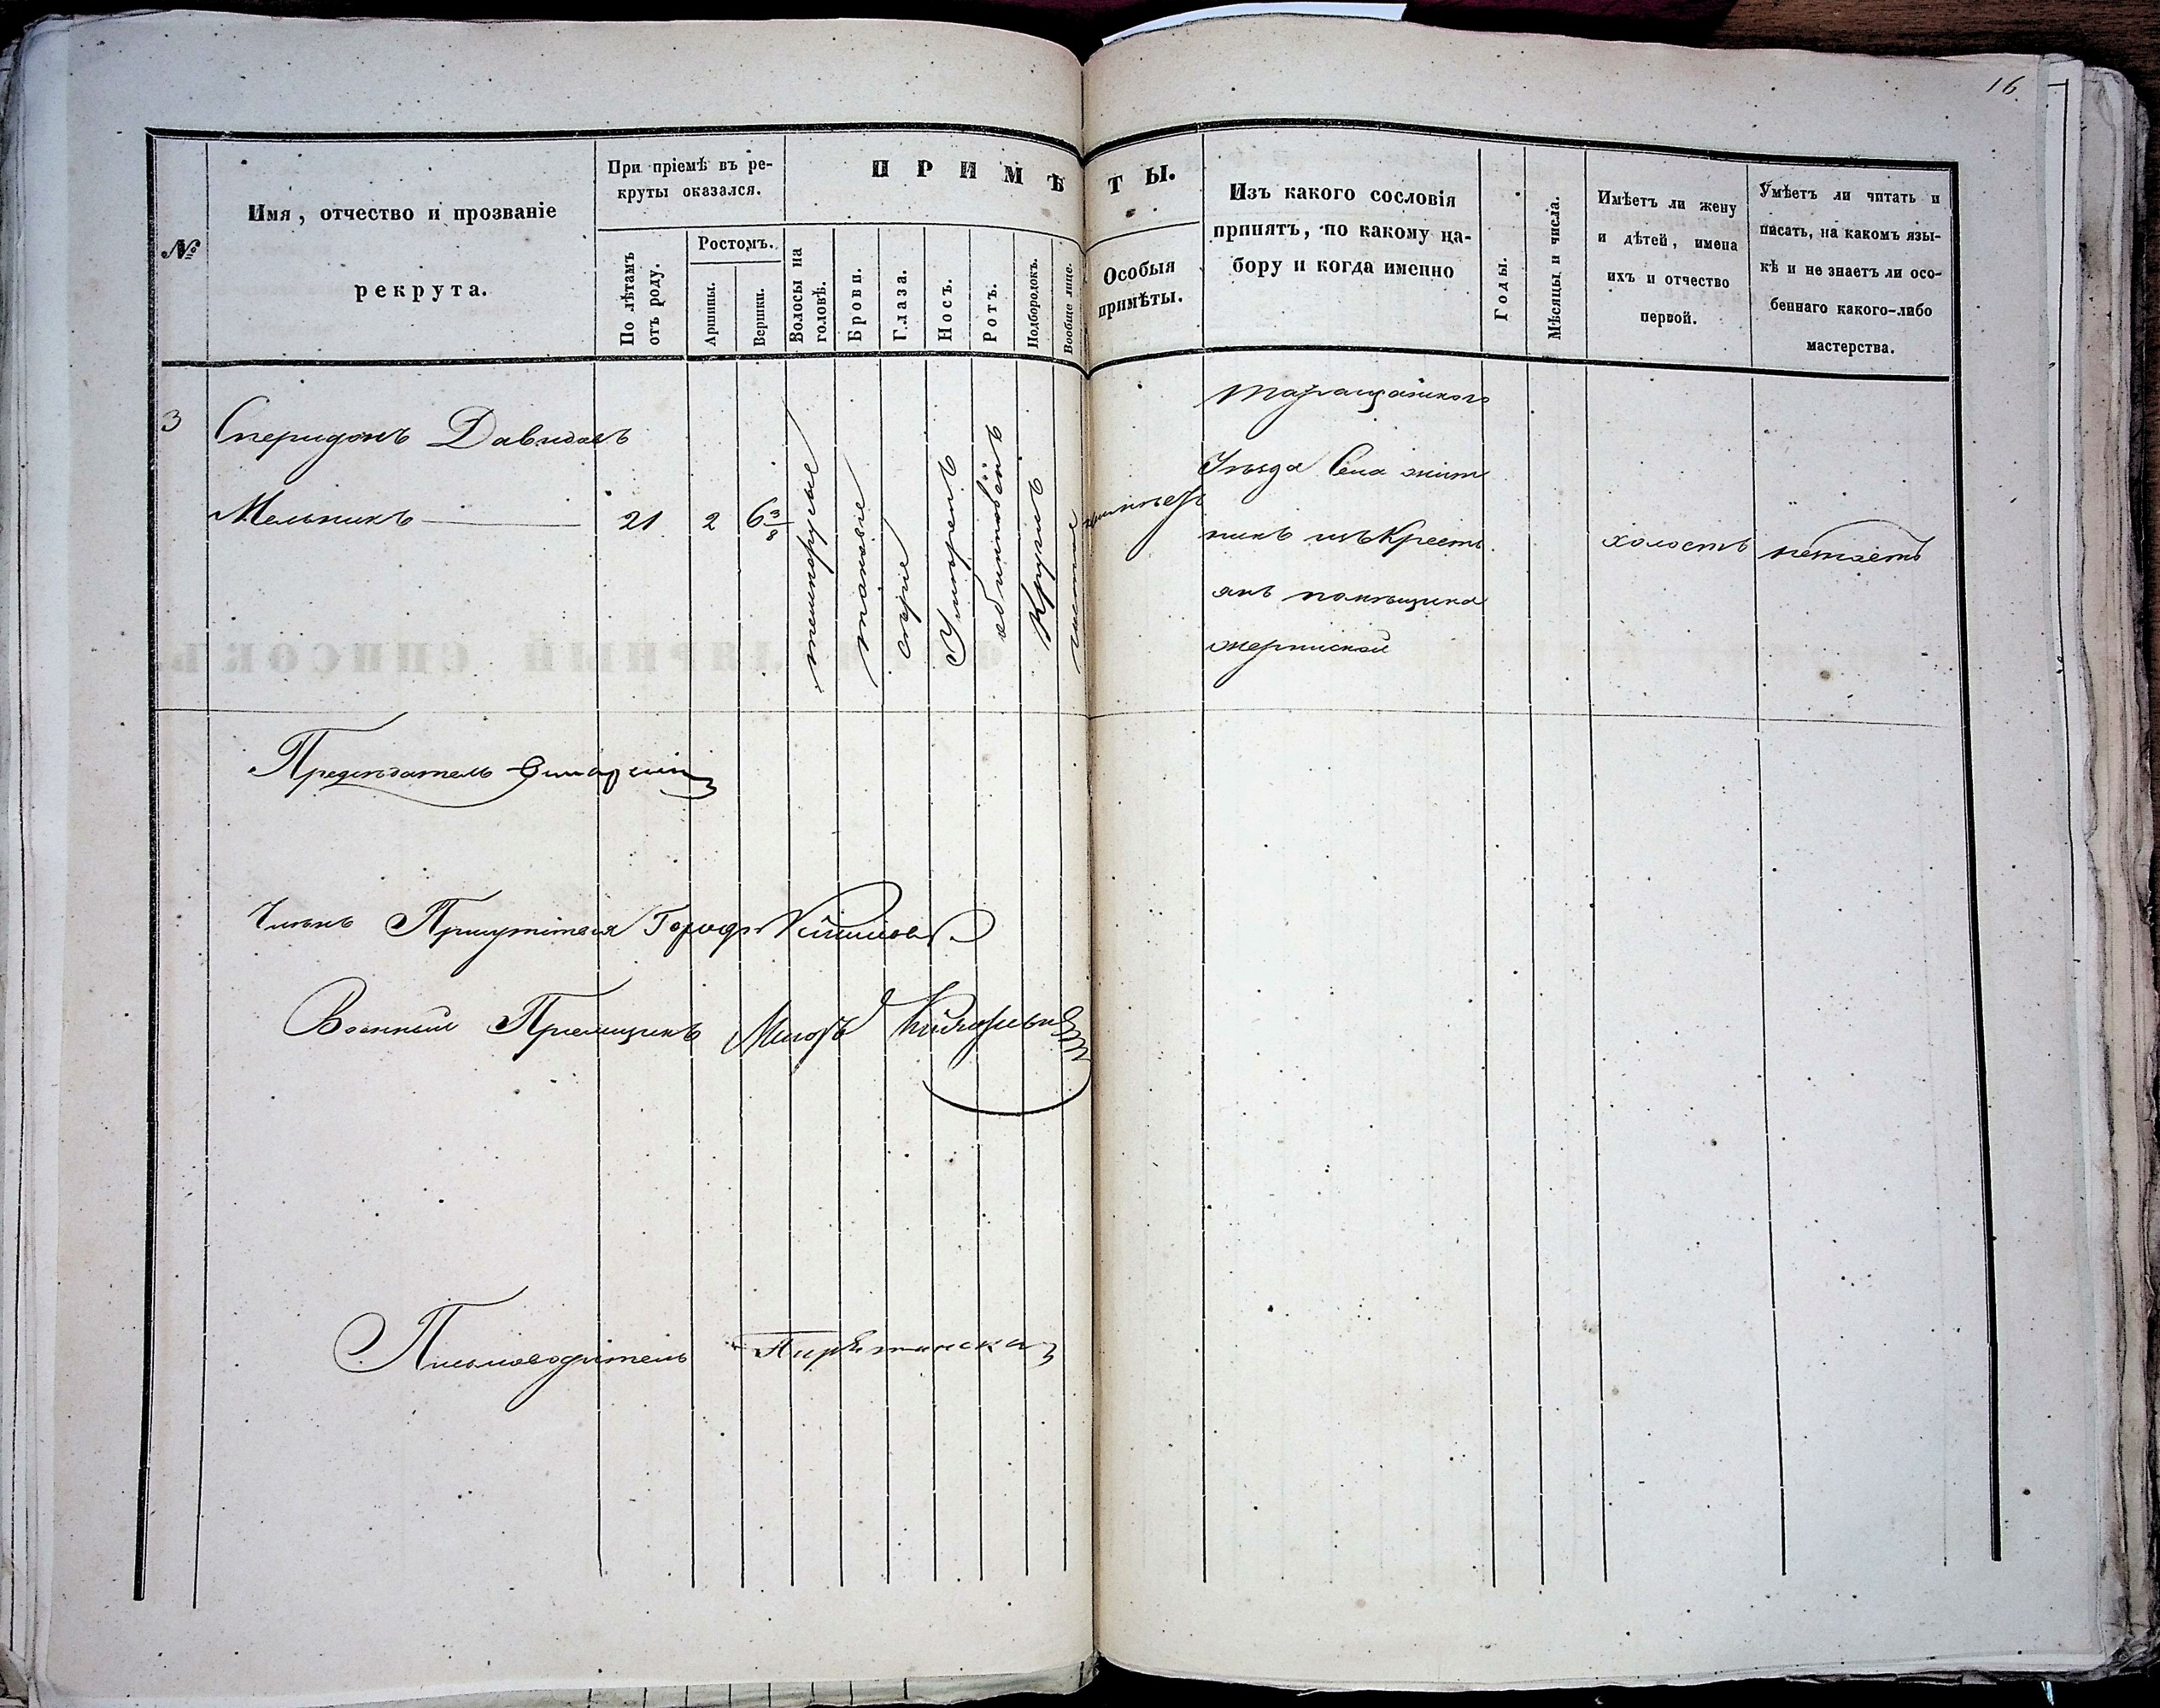 16
№
Имя, отчество и прозваніе
рекрута.
При пріемѣ въ ре-
круты оказался.
По лѣтамъ
отъ роду.
Ростомъ.
Аршины.
Вершки.
ПРИМѢТЫ.
Волосы на
головѣ.
Брови.
Глаза.
Носъ.
Ротъ.
Подбородокъ.
Вообще лице.
Особыя
примѣты.
Изъ какого сословія
принятъ, по какому на-
бору и когда именно
Годы.
Мѣсяцы и числа.
Имѣетъ ли жену
и дѣтей, имена
ихъ и отчество
первой.
Умѣетъ ли читать и
писать, на какомъ язы-
кѣ и не знаетъ ли осо-
беннаго какого-либо
мастерства.
3
Сперидонъ Давидовъ
Мельникъ
21
2
6 3/8
темнорусые
таковые
серіе
Умѣренъ
обикновенъ
Кругла
чистое
Таращанскаго
Уѣзда Села жит
никъ изъ Кресть
янъ помѣщика
холостъ
незнаетъ
Предсѣдатель
Членъ Присутствія Город.
Военный Приемщикъ Маіоръ
Писмоводитель